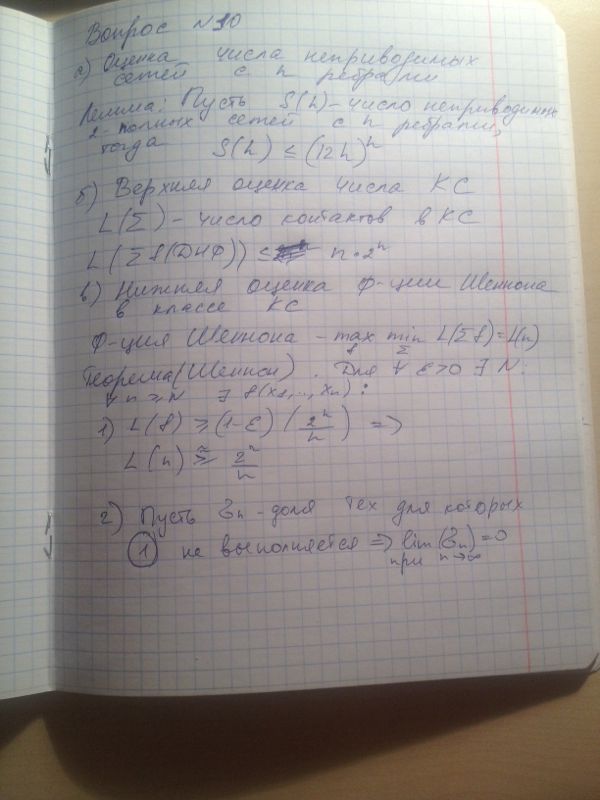 Вопрос №10
а) Оценка числа неприводимых
сетей с h ребрами
Лемма: Пусть S(h) - число неприводимых
2-полюсных сетей с h ребрами,
тогда S(h) ≤ (12h)^h
б) Верхняя оценка числа КС
L(Σ) - число контактов в КС
L(Σf(ДНФ)) ≤ n·2^n
в) Нижняя оценка ф-ции Шеннона
в классе КС
Ф-ция Шеннона - max_f min_Σ L(Σf)=L(n)
Теорема(Шеннон). Для ∀ ε>0 ∃ N:
∀ n ≥ N ∃ f(x₁,..,xₙ):
1) L(f) ≥ (1-ε) (2^n/n) =>
L(n) ≳ 2^n/n
2) Пусть δn - доля тех для которых
① не выполняется => lim (δn) = 0
при n→∞